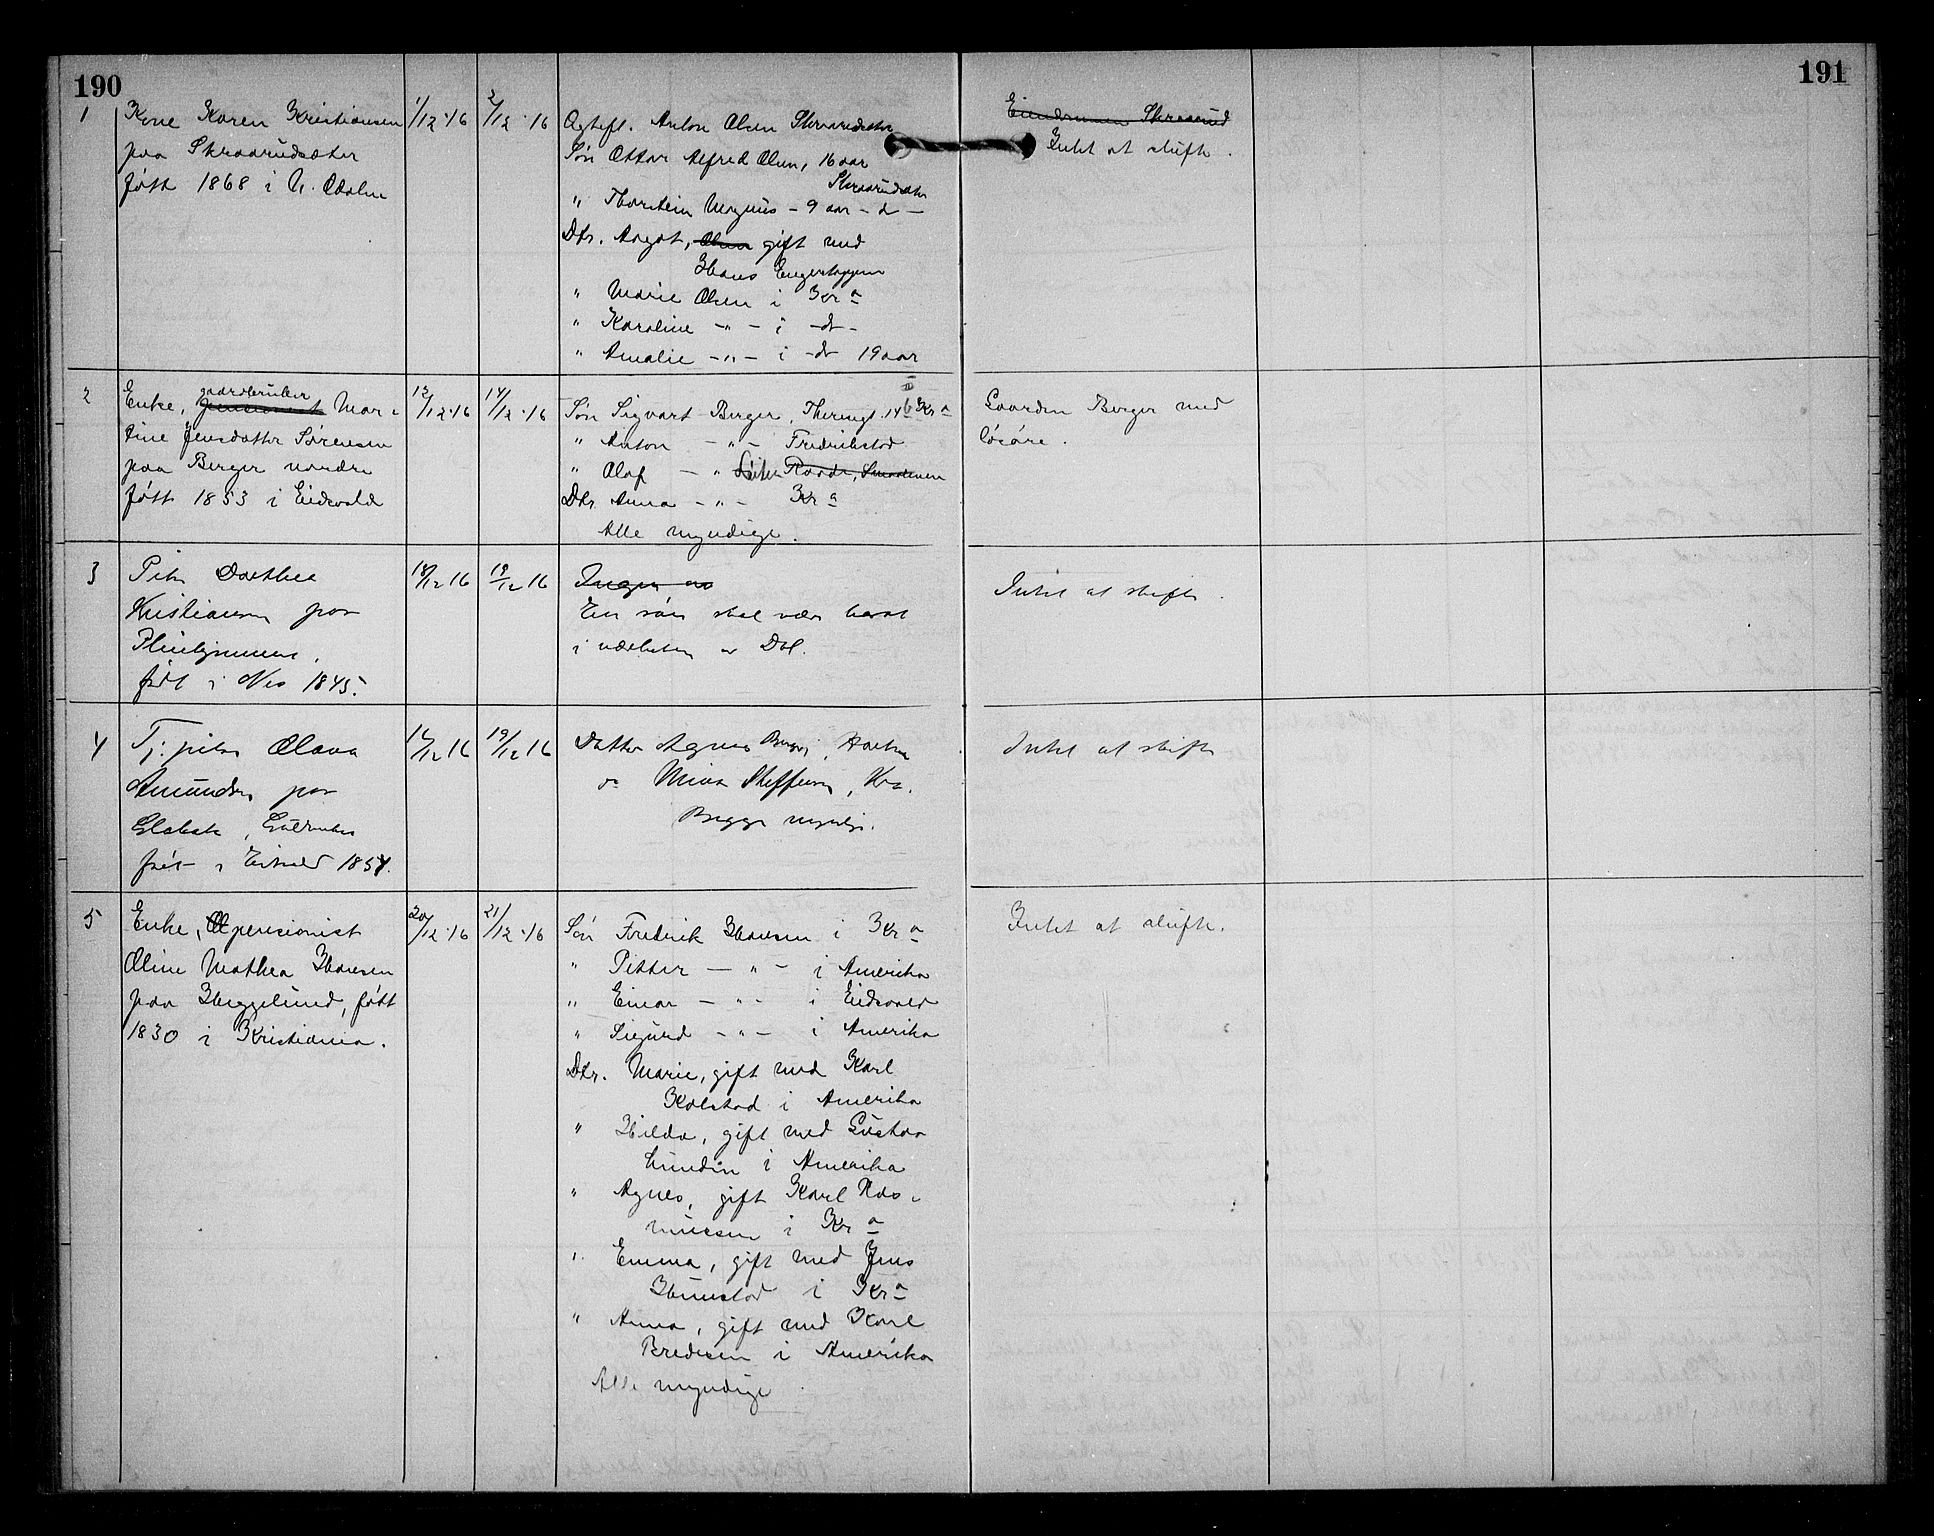 190
191
1
Kone Karen Kristiansen
paa Skraarudsæter
født 1868 i N. Odalen
1/12 '16
2/12 '16
Ægtef. Anton Olsen Skraarudsæter
Søn Ottar Alfred Olsen, 16 aar
Skraarudsæter
" Thorstein Magnus - 9 aar - d -
Dtr. Aagot, Olsen gift med
Hans Engerhaggen
" Marie Olsen i Kra
" Karoline - " - i - d -
" Amalie - " - i - d 19 aar
Eiendommen Skraarud
Intet at skifte.
2
Enke, gaardbruker
pensionist Mar-
tine Jensdatter Sørensen
paa Berger nordre
født 1853 i Eidsvold
12/12 '16
14/12 '16
Søn Sigvart Berger, Theresgt. 14 b Kra
" Anton - " - Fredrikstad
" Olaf - " Raade,
Dtr. Anna - " - Kra
Alle myndige.
Gaarden Berger med
løsøre.
3
Pike Dorthea
Kristiansen paa
født i Nes 1845.
18/12 16
19/12 16
Ingen
En søn skal være bosat
i nærheten av Dal.
Intet at skifte.
4
Tj. pike Olava
Amundsen paa
født i Eidsvold 1854.
16/12 16
19/12 16
Datter Agnes Berg,
do Mina Steffensen, Kra.
Begge myndige.
Intet at skifte
5
Enke, pensionist
Oline Mathea Hansen
paa Heggelund, født
1830 i Kristiania.
20/12 '16
21/12 '16
Søn Fredrik Hansen i Kra
" Petter - " - i Amerika
" Einar - " - i Eidsvold
" Sigurd - " - i Amerika
Dtr. Marie, gift med Karl
Kolstad i Amerika
" Hilda, gift med Gustav
Lundin i Amerika
" Agnes, gift Karl Ras-
mussen i Kra
" Emma, gift med Jens
Hunstad i Kra
" Anna, gift med Karl
Bredesen i Amerika
Alle myndige
Intet at skifte.